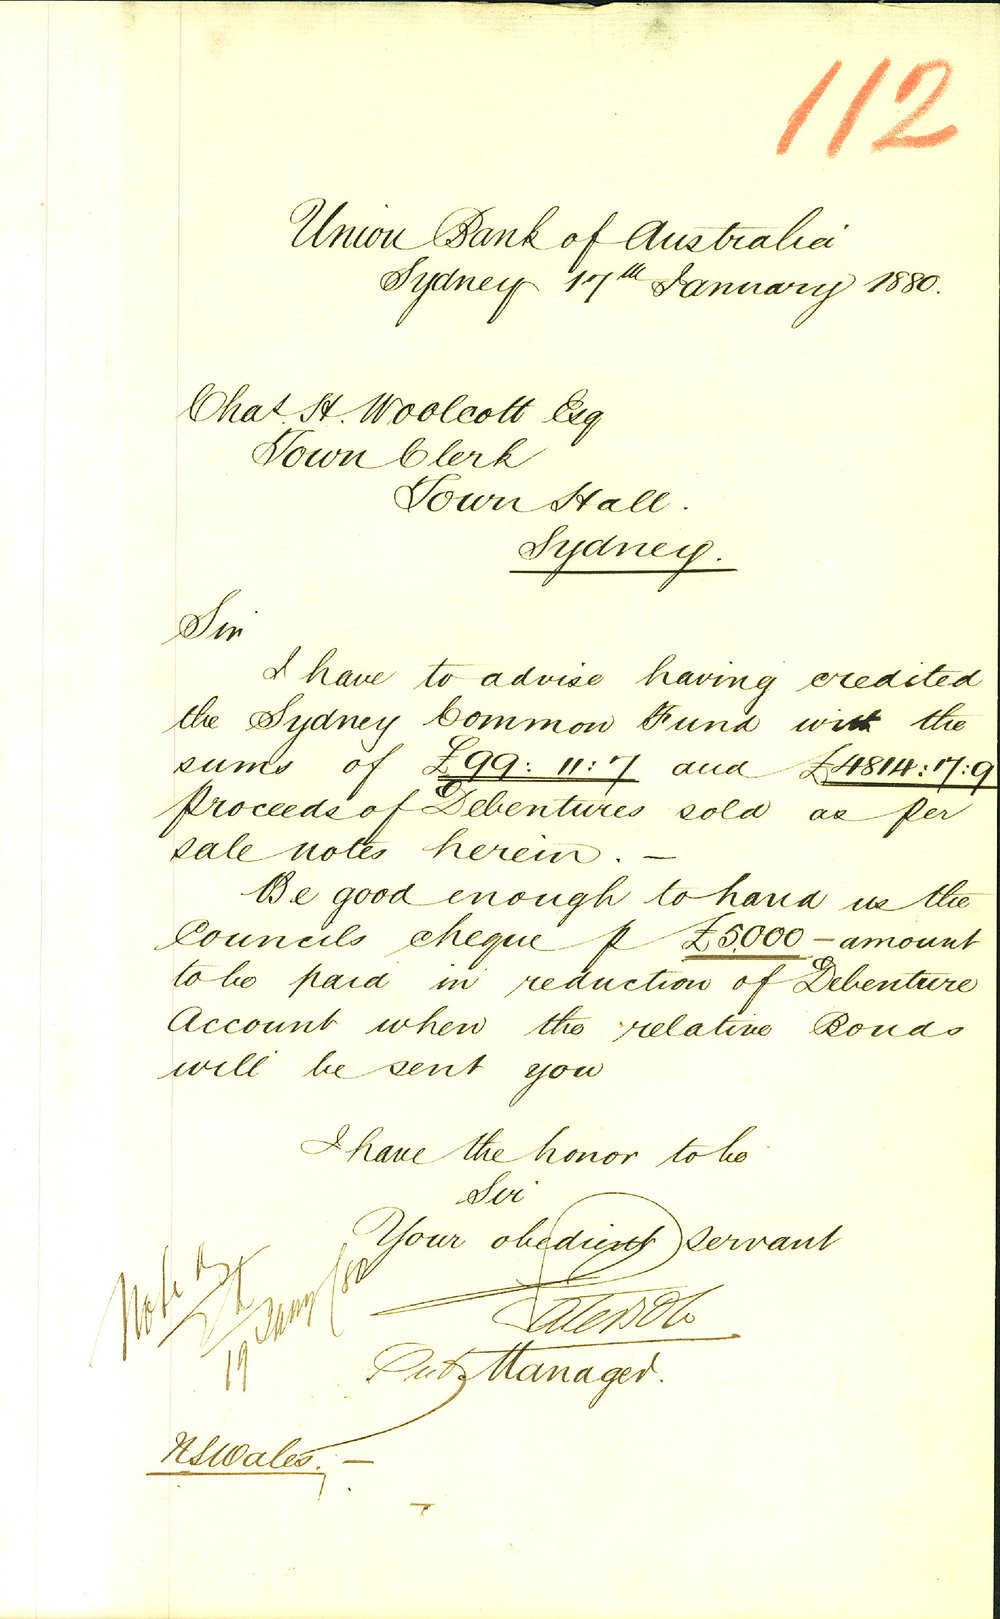 112
Union Bank of Australia
Sydney 17th January 1880.
Chas. H. Woolcott Esq
Town Clerk
Town Hall.
Sydney.
Sir
I have to advise having credited
the Sydney Common Fund with the
sums of £99:11:7 and £4814:17:9
proceeds of Debentures sold as per
sale notes herein. —
Be good enough to hand us the
Councils cheque p £5000 – amount
to be paid in reduction of Debenture
Account when the relative Bonds
will be sent you
I have the honor to be
Sir
Your obedient servant
Manager.
19 Jany /80
NSWales. —